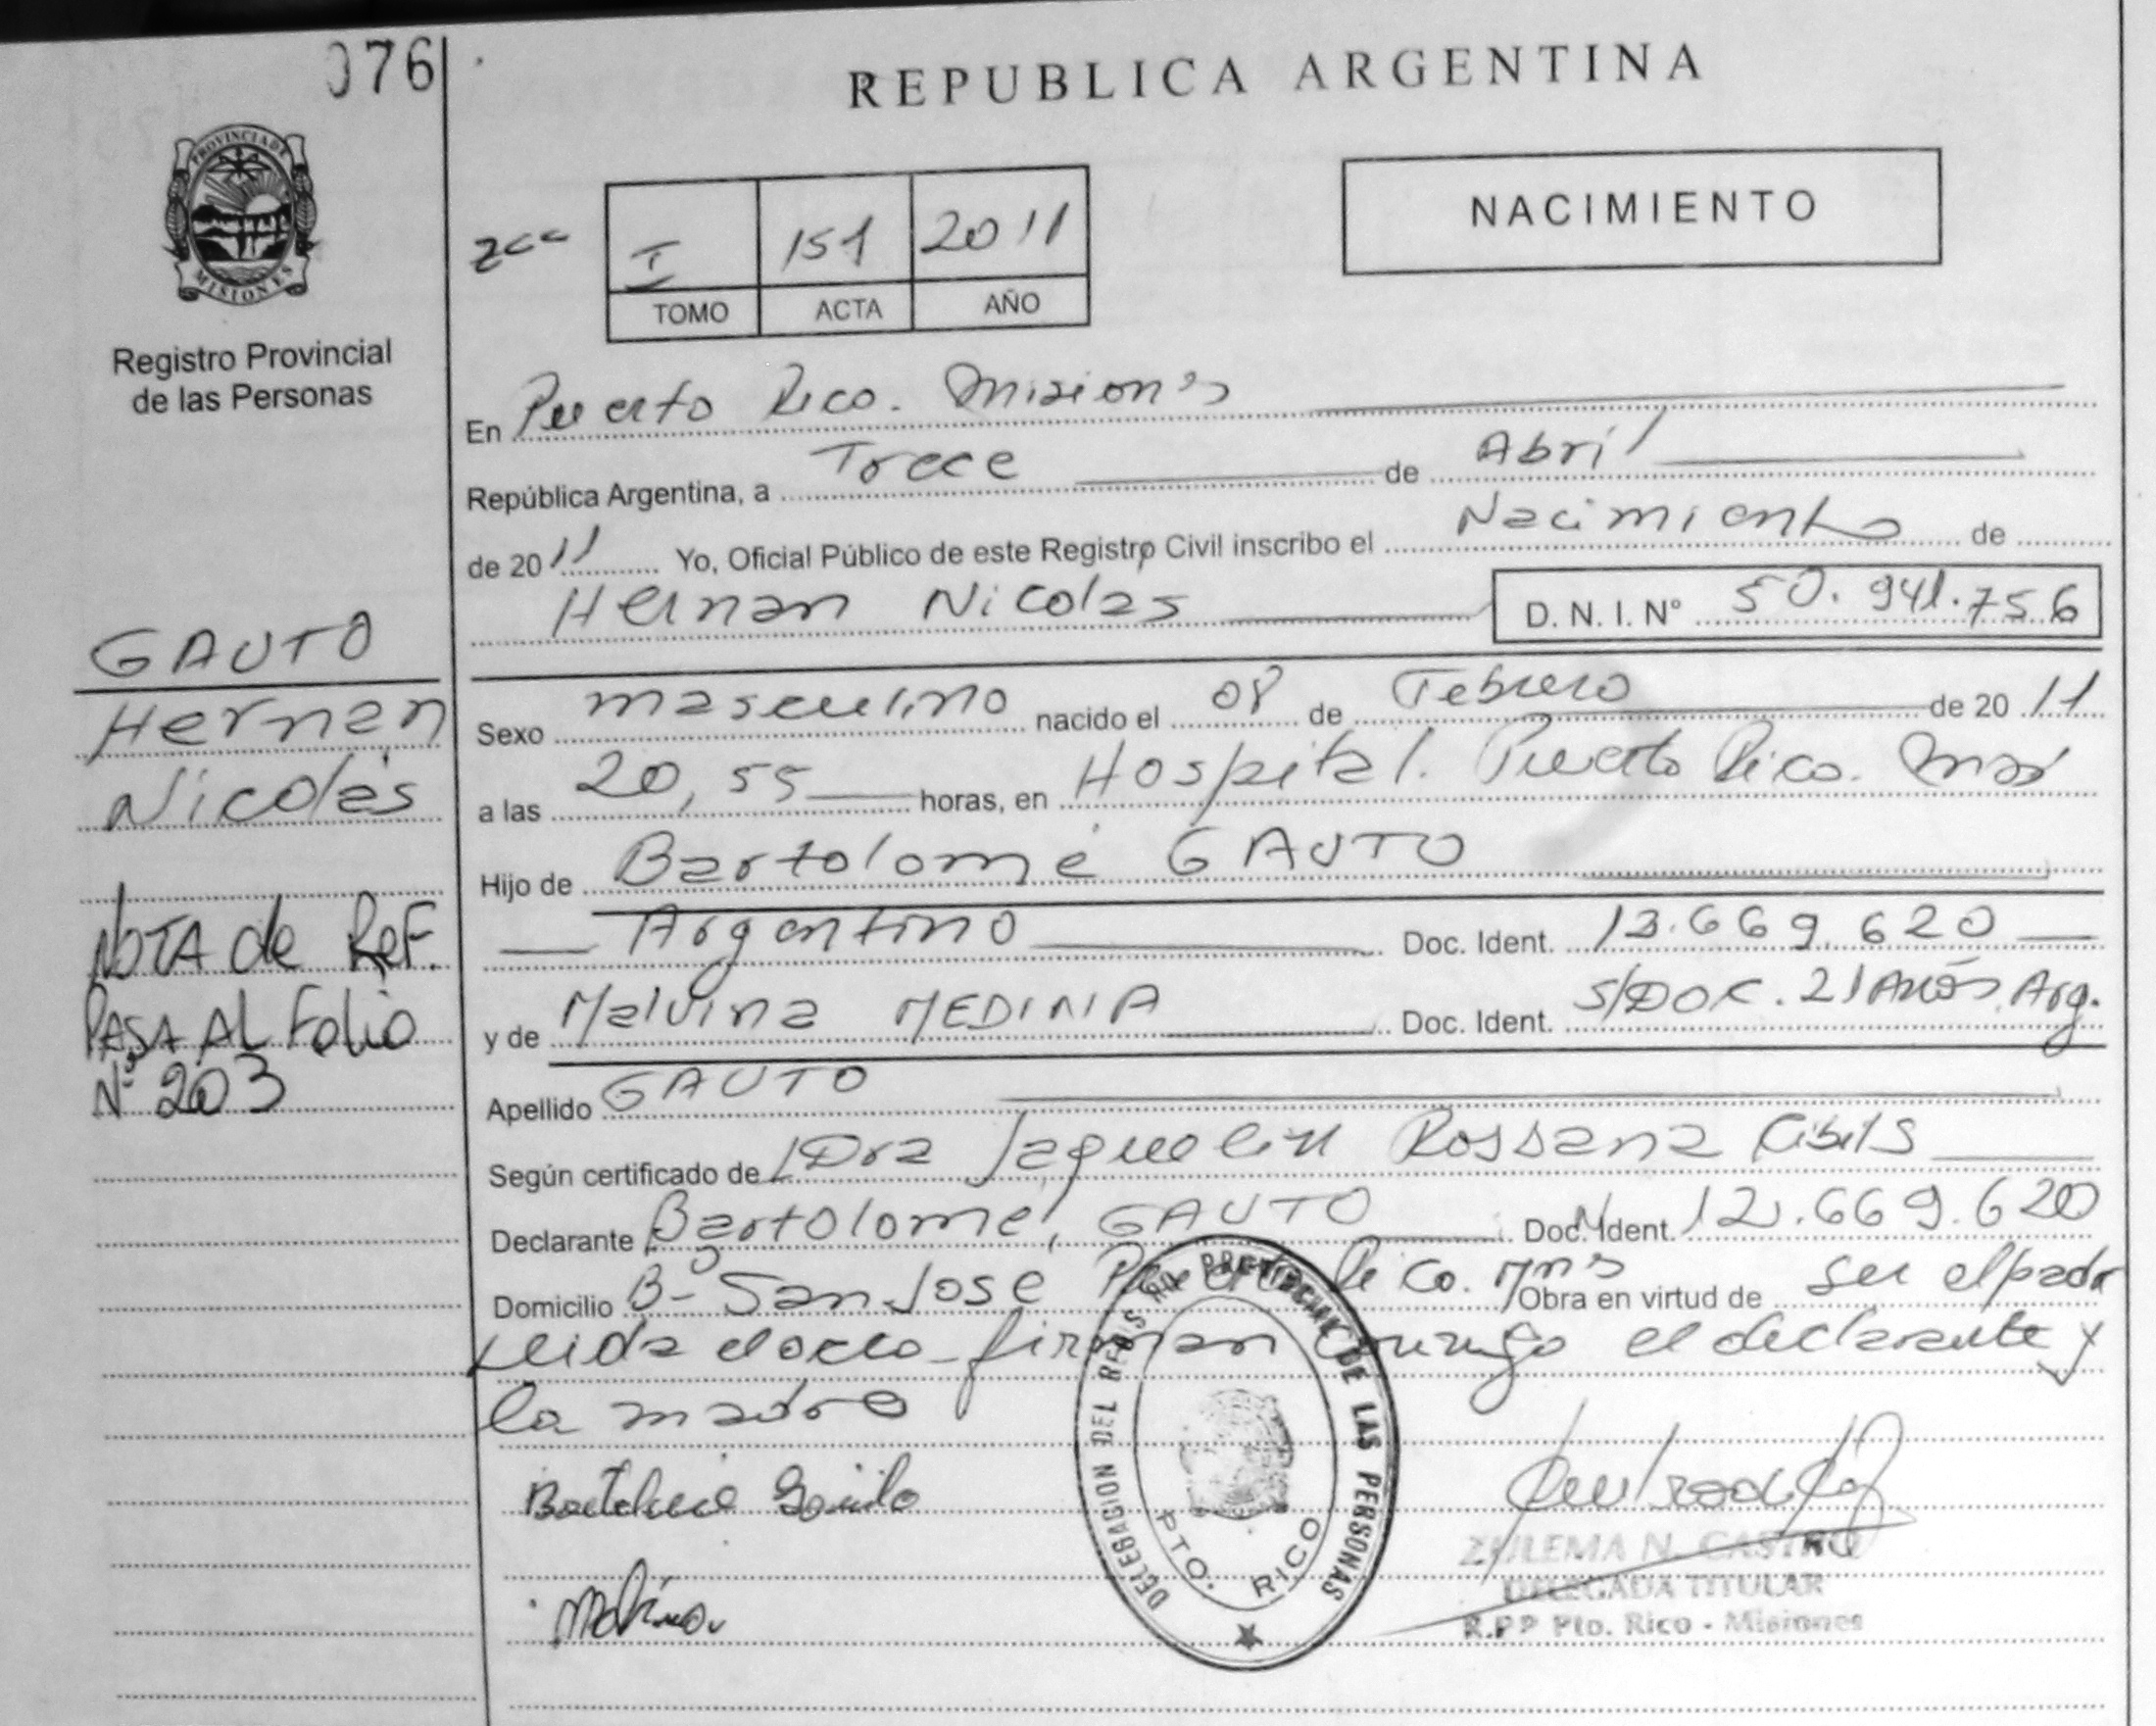 076
REPUBLICA ARGENTINA
PROVINCIA DE
MISIONES
Registro Provincial
de las Personas
I 151 2011
TOMO ACTA AÑO
NACIMIENTO
En Puerto Rico. Mision's
República Argentina, a Trece de Abril
de 2011 Yo, Oficial Público de este Registro Civil inscribo el Nacimiento de
Hernan Nicolas D. N. I. N° 50.941.756
GAUTO
Hernan
Nicolás
Sexo masculino nacido el 08 de Febrero de 2011
a las 20,55 horas, en Hospital. Puerto Rico. Mns
Hijo de Bartolomé GAUTO
Argentino Doc. Ident. 12.669.620
y de Malvina MEDINA Doc. Ident. S/DOC. 21 Años Arg.
NOTA de Ref.
PASA AL Folio
N° 203
Apellido GAUTO
Según certificado de Dra Jaquelin Rossana Cibils
Declarante Bartolomé, GAUTO Doc. Ident. 12.669.620
Domicilio B° San Jose Puerto Rico. Mns Obra en virtud de ser el padre
Leida el acta firman conmigo el declarante y
la madre
Bartolome Gauto
Malvina
DELEGACION DEL REGISTRO PROVINCIAL DE LAS PERSONAS
PTO. RICO
ZULEMA N. CASTRO
DELEGADA TITULAR
R.P.P Pto. Rico - Misiones